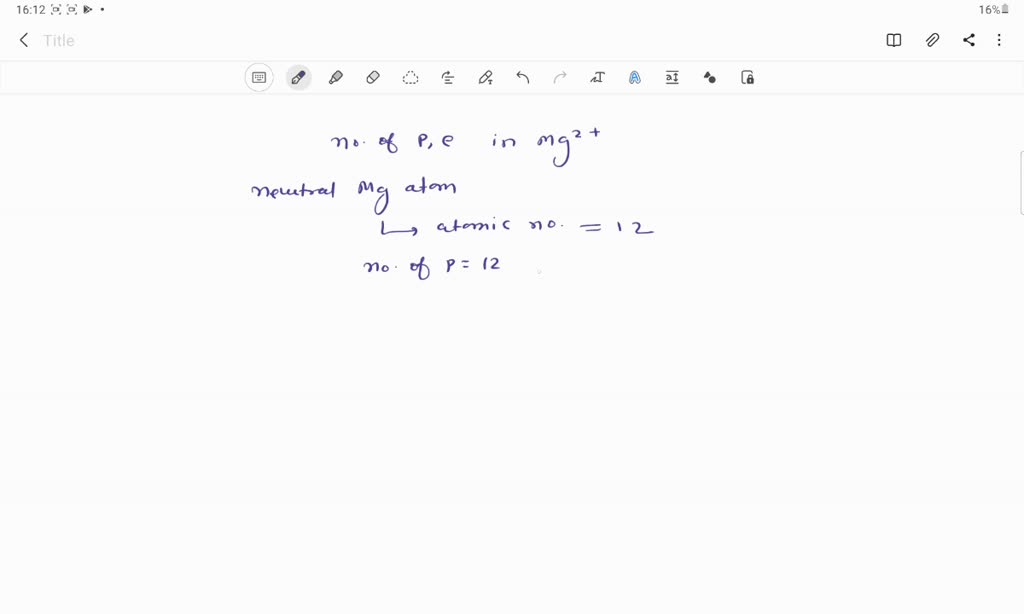 16:12
16%
Title
no. of P, e in Mg2+
neutral Mg atom
↳ atomic no. = 12
no. of P = 12